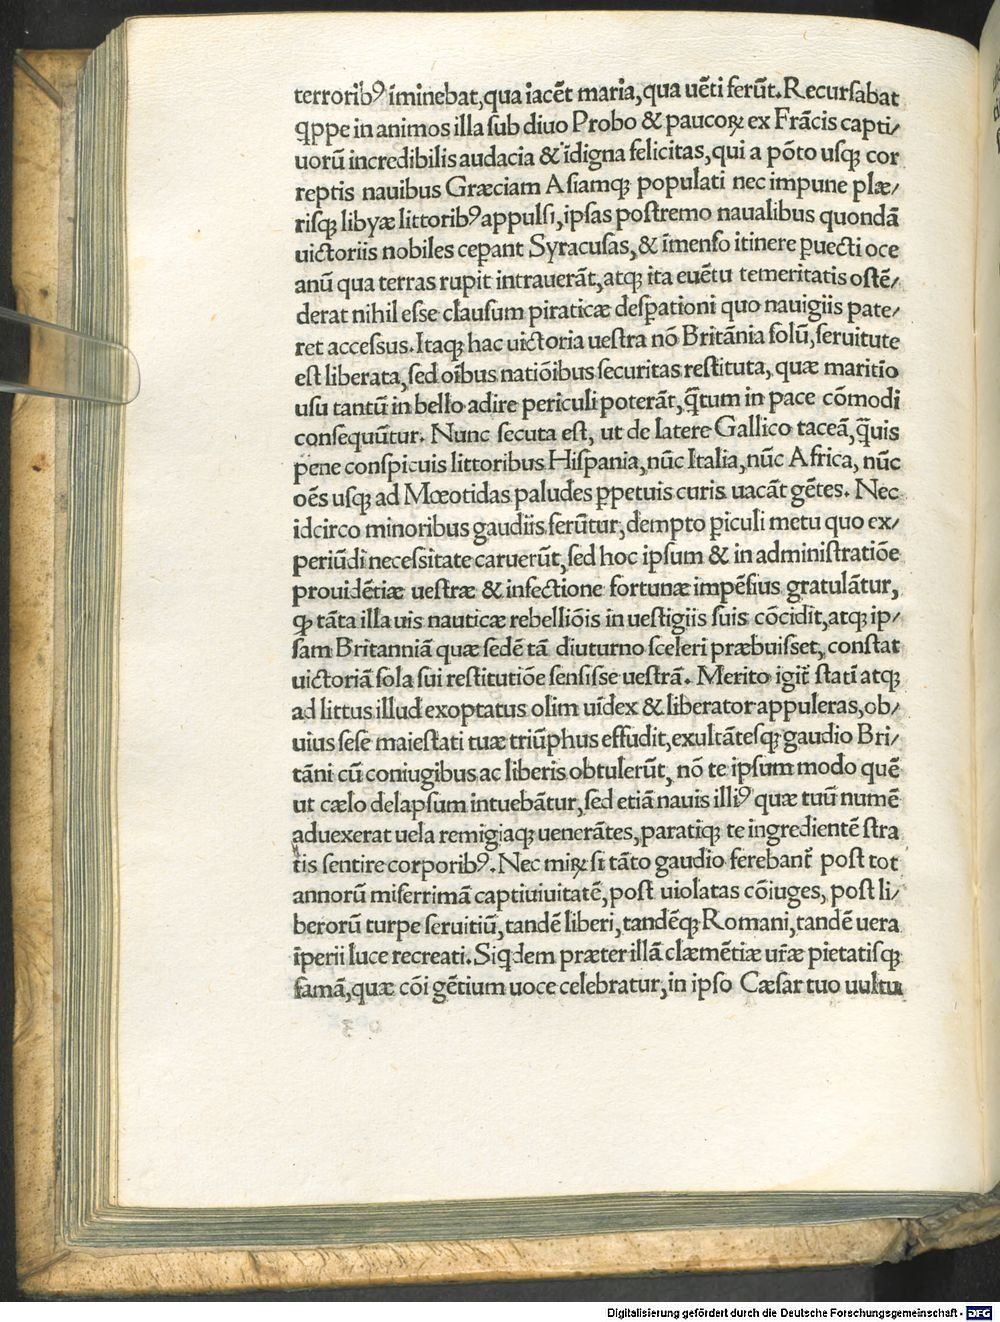 terroribꝰ īminebat, qua iacēt maria, qua uēti ferūt. Recursabat
qppe in animos illa sub diuo Probo & paucoꝝ ex Frācis capti/
uorū incredibilis audacia & īdigna felicitas, qui a pōto usqꝫ cor
reptis nauibus Græciam Asiamqꝫ populati nec impune plæ/
risqꝫ libyæ littoribꝰ appulsi, ipsas postremo naualibus quondā
uictoriis nobiles ceꝑant Syracusas, & īmenso itinere ꝑuecti oce
anū qua terras rupit intrauerāt, atqꝫ ita euētu temeritatis ostē/
derat nihil esse clausum piraticæ desꝑationi quo nauigiis pate/
ret accessus. Itaqꝫ hac uictoria uestra nō Britānia solū, seruitute
est liberata, sed oībus natiōibus securitas restituta, quæ maritīo
usu tantū in bello adire periculi poterāt, q̄tum in pace cōmodi
consequūtur. Nunc secuta est, ut de latere Gallico taceā, q̄uis
pene conspicuis littoribus Hispania, nūc Italia, nūc Africa, nūc
oēs usqꝫ ad Mœotidas paludes ꝑpetuis curis uacāt gētes. Nec
idcirco minoribus gaudiis ferūtur, dempto ꝑiculi metu quo ex/
periūdi necessitate caruerūt, sed hoc ipsum & in administratiōe
prouidētiæ uestræ & infectione fortunæ impēsius gratulātur,
qꝫ tāta illa uis nauticæ rebelliōis in uestigiis suis cōcidit, atqꝫ ip/
sam Britanniā quæ sedē tā diuturno sceleri præbuisset, constat
uictoriā sola sui restitutiōe sensisse uestrā. Merito igit̄ statī atqꝫ
ad littus illud exoptatus olim uīdex & liberator appuleras, ob/
uius sese maiestati tuæ triūphus effudit, exultātesqꝫ gaudio Bri/
tāni cū coniugibus ac liberis obtulerūt, nō te ipsum modo quē
ut cælo delapsum intuebātur, sed etiā nauis illiꝰ quæ tuū numē
aduexerat uela remigiaqꝫ uenerātes, paratiqꝫ te ingredientē stra
tis sentire corporibꝰ. Nec miꝝ si tāto gaudio ferebant̄ post tot
annorū miserrimā captiuiuitatē, post uiolatas cōiuges, post li/
berorū turpe seruitiū, tandē liberi, tandēqꝫ Romani, tandē uera
īperii luce recreati. Siqdem præter illā clæmētiæ ur̄æ pietatisqꝫ
famā, quæ cōi gētium uoce celebratur, in ipso Cæsar tuo uultu
Digitalisierung gefördert durch die Deutsche Forschungsgemeinschaft - DFG